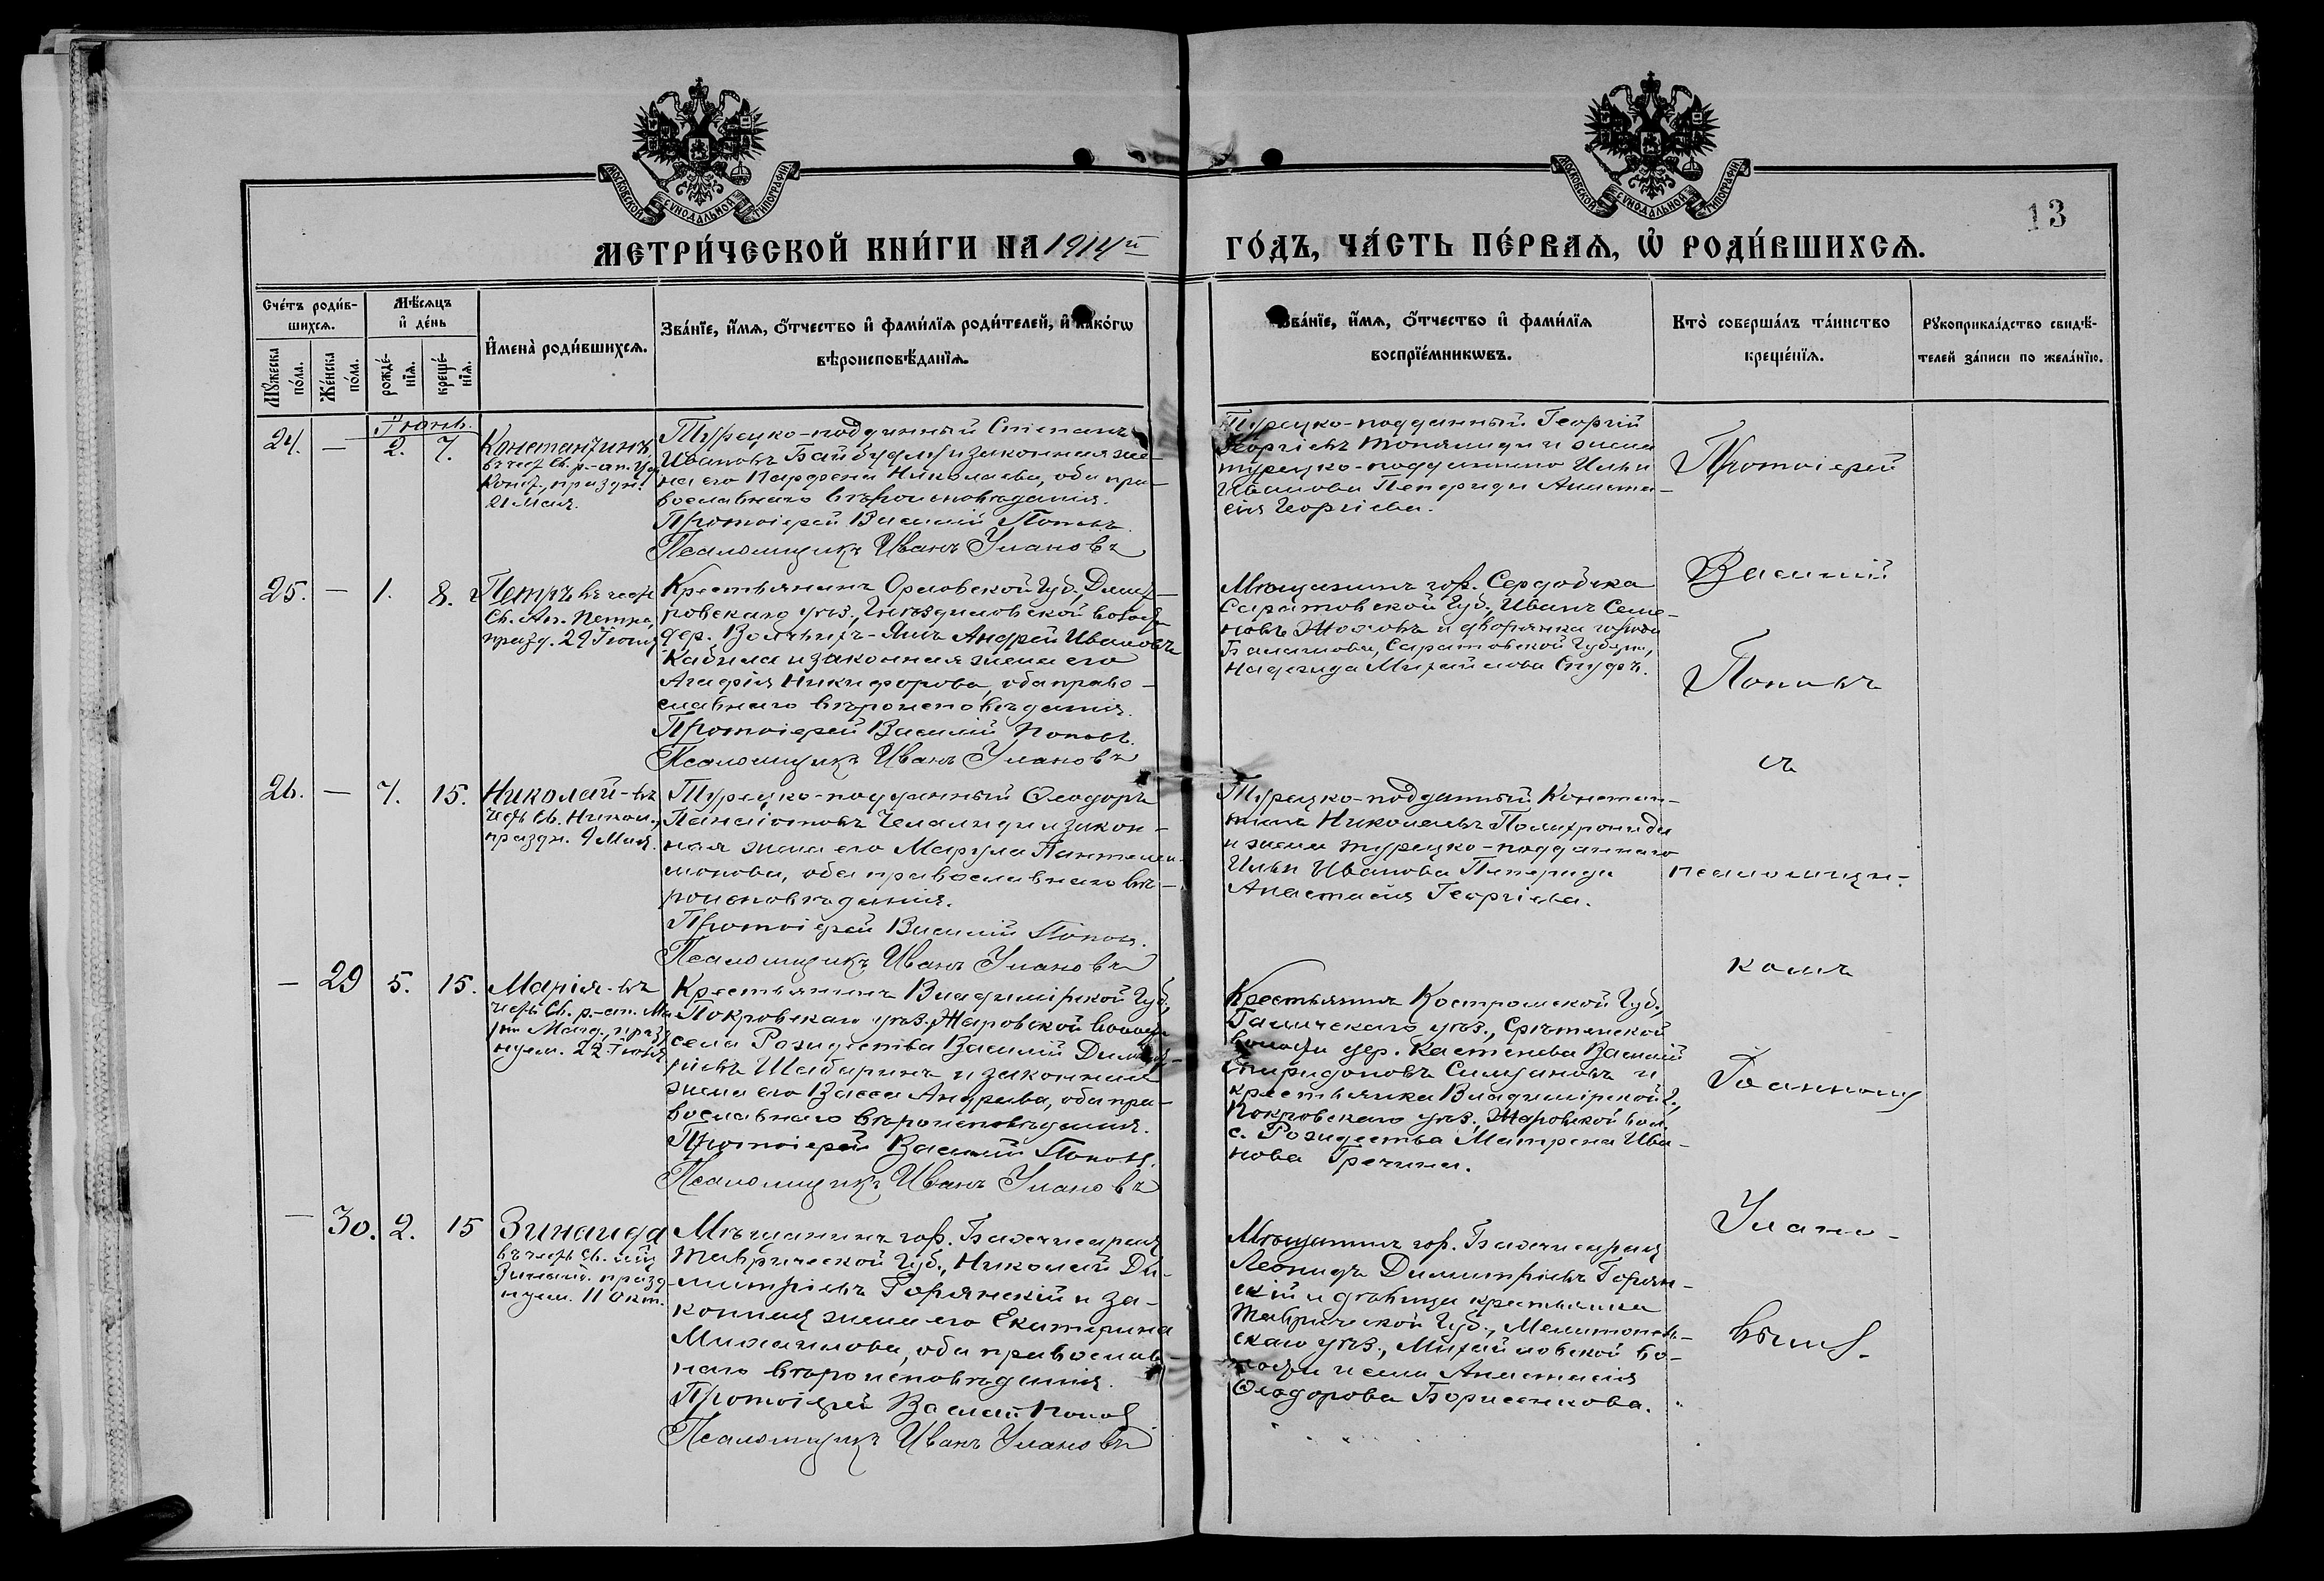 МОСКОВСКОЙ СѴНОДАЛЬНОЙ ТИПОГРАФІИ
МОСКОВСКОЙ СѴНОДАЛЬНОЙ ТИПОГРАФІИ
13
МЕТРИ́ЧЕСКОЙ КНИ́ГИ НА 1914й
ГО́ДЪ, ЧА́СТЬ ПЕ́РВАѦ, Ѡ҆ РОДИ́ВШИХСѦ.
Сче́тъ роди́в-
шихсѧ.
Мѣ́сѧцъ
и҆ де́нь
Мꙋ́жеска по́ла.
Же́нска по́ла.
рожде́-
нїѧ.
креще́-
нїѧ.
И҆мена̀ роди́вшихсѧ.
Зва́нїе, и҆́мѧ, ѻ҆́тчество и҆ фами́лїѧ роди́телей, и҆ како́гѡ
вѣроисповѣ́данїѧ.
Зва́нїе, и҆́мѧ, ѻ҆́тчество и҆ фами́лїѧ
воспрїе́мникѡвъ.
Кто̀ соверша́лъ та́инство
креще́нїѧ.
Рꙋкоприкла́дство свидѣ́-
телей за́писи по жела́нїю.
24. —
2. 7.
Константинъ
21 Мая.
Турецко-подданный Степанъ
Ивановъ и законная же-
на его Парѳена Николаева, оба пра-
вославнаго вѣроисповѣданія.
Протоіерей Василій Поповъ.
Псаломщикъ Иванъ Улановъ
Турецко-подданный Георгій
Георгіевъ и жена
турецко-подданнаго Ильи
Иванова Пепериди Анаста-
сія Георгіева.
25. — 1. 8.
Петръ въ честь
Св. Ап. Петра,
празд. 29 Іюня
Крестьянинъ Орловской Губ., Дмит-
ровскаго уѣз., волости
дер. Андрей Ивановъ
и законная жена его
Агафія Никифорова, оба право-
славнаго вѣроисповѣданія.
Протоіерей Василій Поповъ.
Псаломщикъ Иванъ Улановъ
Мѣщанинъ гор. Сердобска
Саратовской Губ., Иванъ Семе-
новъ и дворянка города
Балашова, Саратовской Губерн.,
Надежда Михайлова
26. — 7. 15.
Николай - въ
честь Св. Никол.,
праздн. 9 Мая.
Турецко-подданный Ѳеодоръ
Панаіотовъ и закон-
ная жена его Марѳула Пантелей-
монова, оба православнаго вѣ-
роисповѣданія.
Протоіерей Василій Поповъ.
Псаломщикъ Иванъ Улановъ
Турецко-подданный Констан-
тинъ Николаевъ Полихрониди
и жена турецко-подданнаго
Ильи Иванова Пепериди
Анастасія Георгіева.
— 29 5. 15.
Марія - въ
честь Св. р.-ап. Ма-
ріи Магд., празд-
нуем. 22 Іюля
Крестьянинъ Владимірской Губ.,
Покровскаго уѣз. Жаровской волости
села Рождества Василій Димит-
ріевъ Шабаринъ и законная
жена его Васса Андреева, оба пра-
вославнаго вѣроисповѣданія.
Протоіерей Василій Поповъ.
Псаломщикъ Иванъ Улановъ
Крестьянинъ Костромской Губ.,
Галичскаго уѣз., Срѣтенской
волости дер. Василій
Спиридоновъ и
крестьянка Владимірской г.,
Покровскаго уѣз., Жаровской вол.
с. Рождества Матрена Ива-
нова
— 30. 2. 15
Зинаида
въ честь Св. муч.
Зинаид. празд-
нуем. 11 Окт.
Мѣщанинъ гор. Бахчисарая
Таврической Губ., Николай Ди-
митріевъ Горянскій и за-
конная жена его Екатерина
Михаилова, оба православ-
наго вѣроисповѣданія.
Протоіерей Василій Поповъ
Псаломщикъ Иванъ Улановъ
Мѣщанинъ гор. Бахчисарая
Леонидъ Димитріевъ Горян-
скій и дѣвица крестьянка
Таврической Губ., Мелитополь-
скаго уѣз., Михайловской во-
лости и села Анастасія
Ѳеодорова Борисенкова.
Протоіерей
Василій
Поповъ
съ
псаломщи-
комъ
Іоанномъ
Улано-
вымъ.